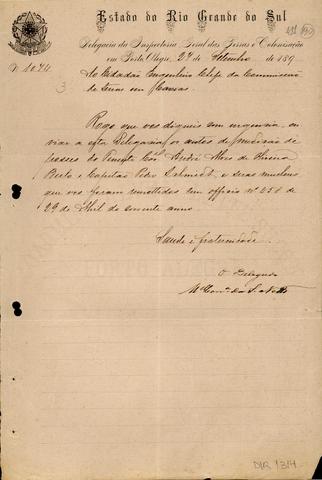 Estado do Rio Grande do Sul
Delegacia da Inspectoria Geral das Terras e Colonisação
em Porto Alegre, 27 de Setembro de 189
Nº 1074
3
Ao Cidadão Engenheiro Chefe da Commissão
de terras em
Rogo que vos digneis com urgencia, en-
viar a esta Delegacia os autos de medição de
posses do Tenente Cor.el André Alves de
e Capitão Pedro Schmidt, e seus
que vos foram remettidos em officio nº 258 de
29 de Abril do corrente anno.
Saude e fraternidade.
O Delegado
DIR 1314